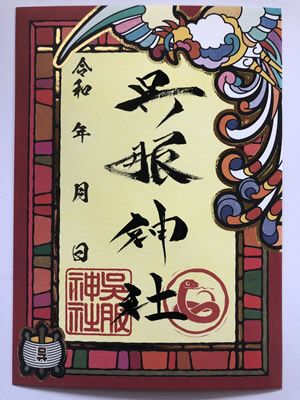 呉服神社
令和 年 月 日
呉服
神社
呉